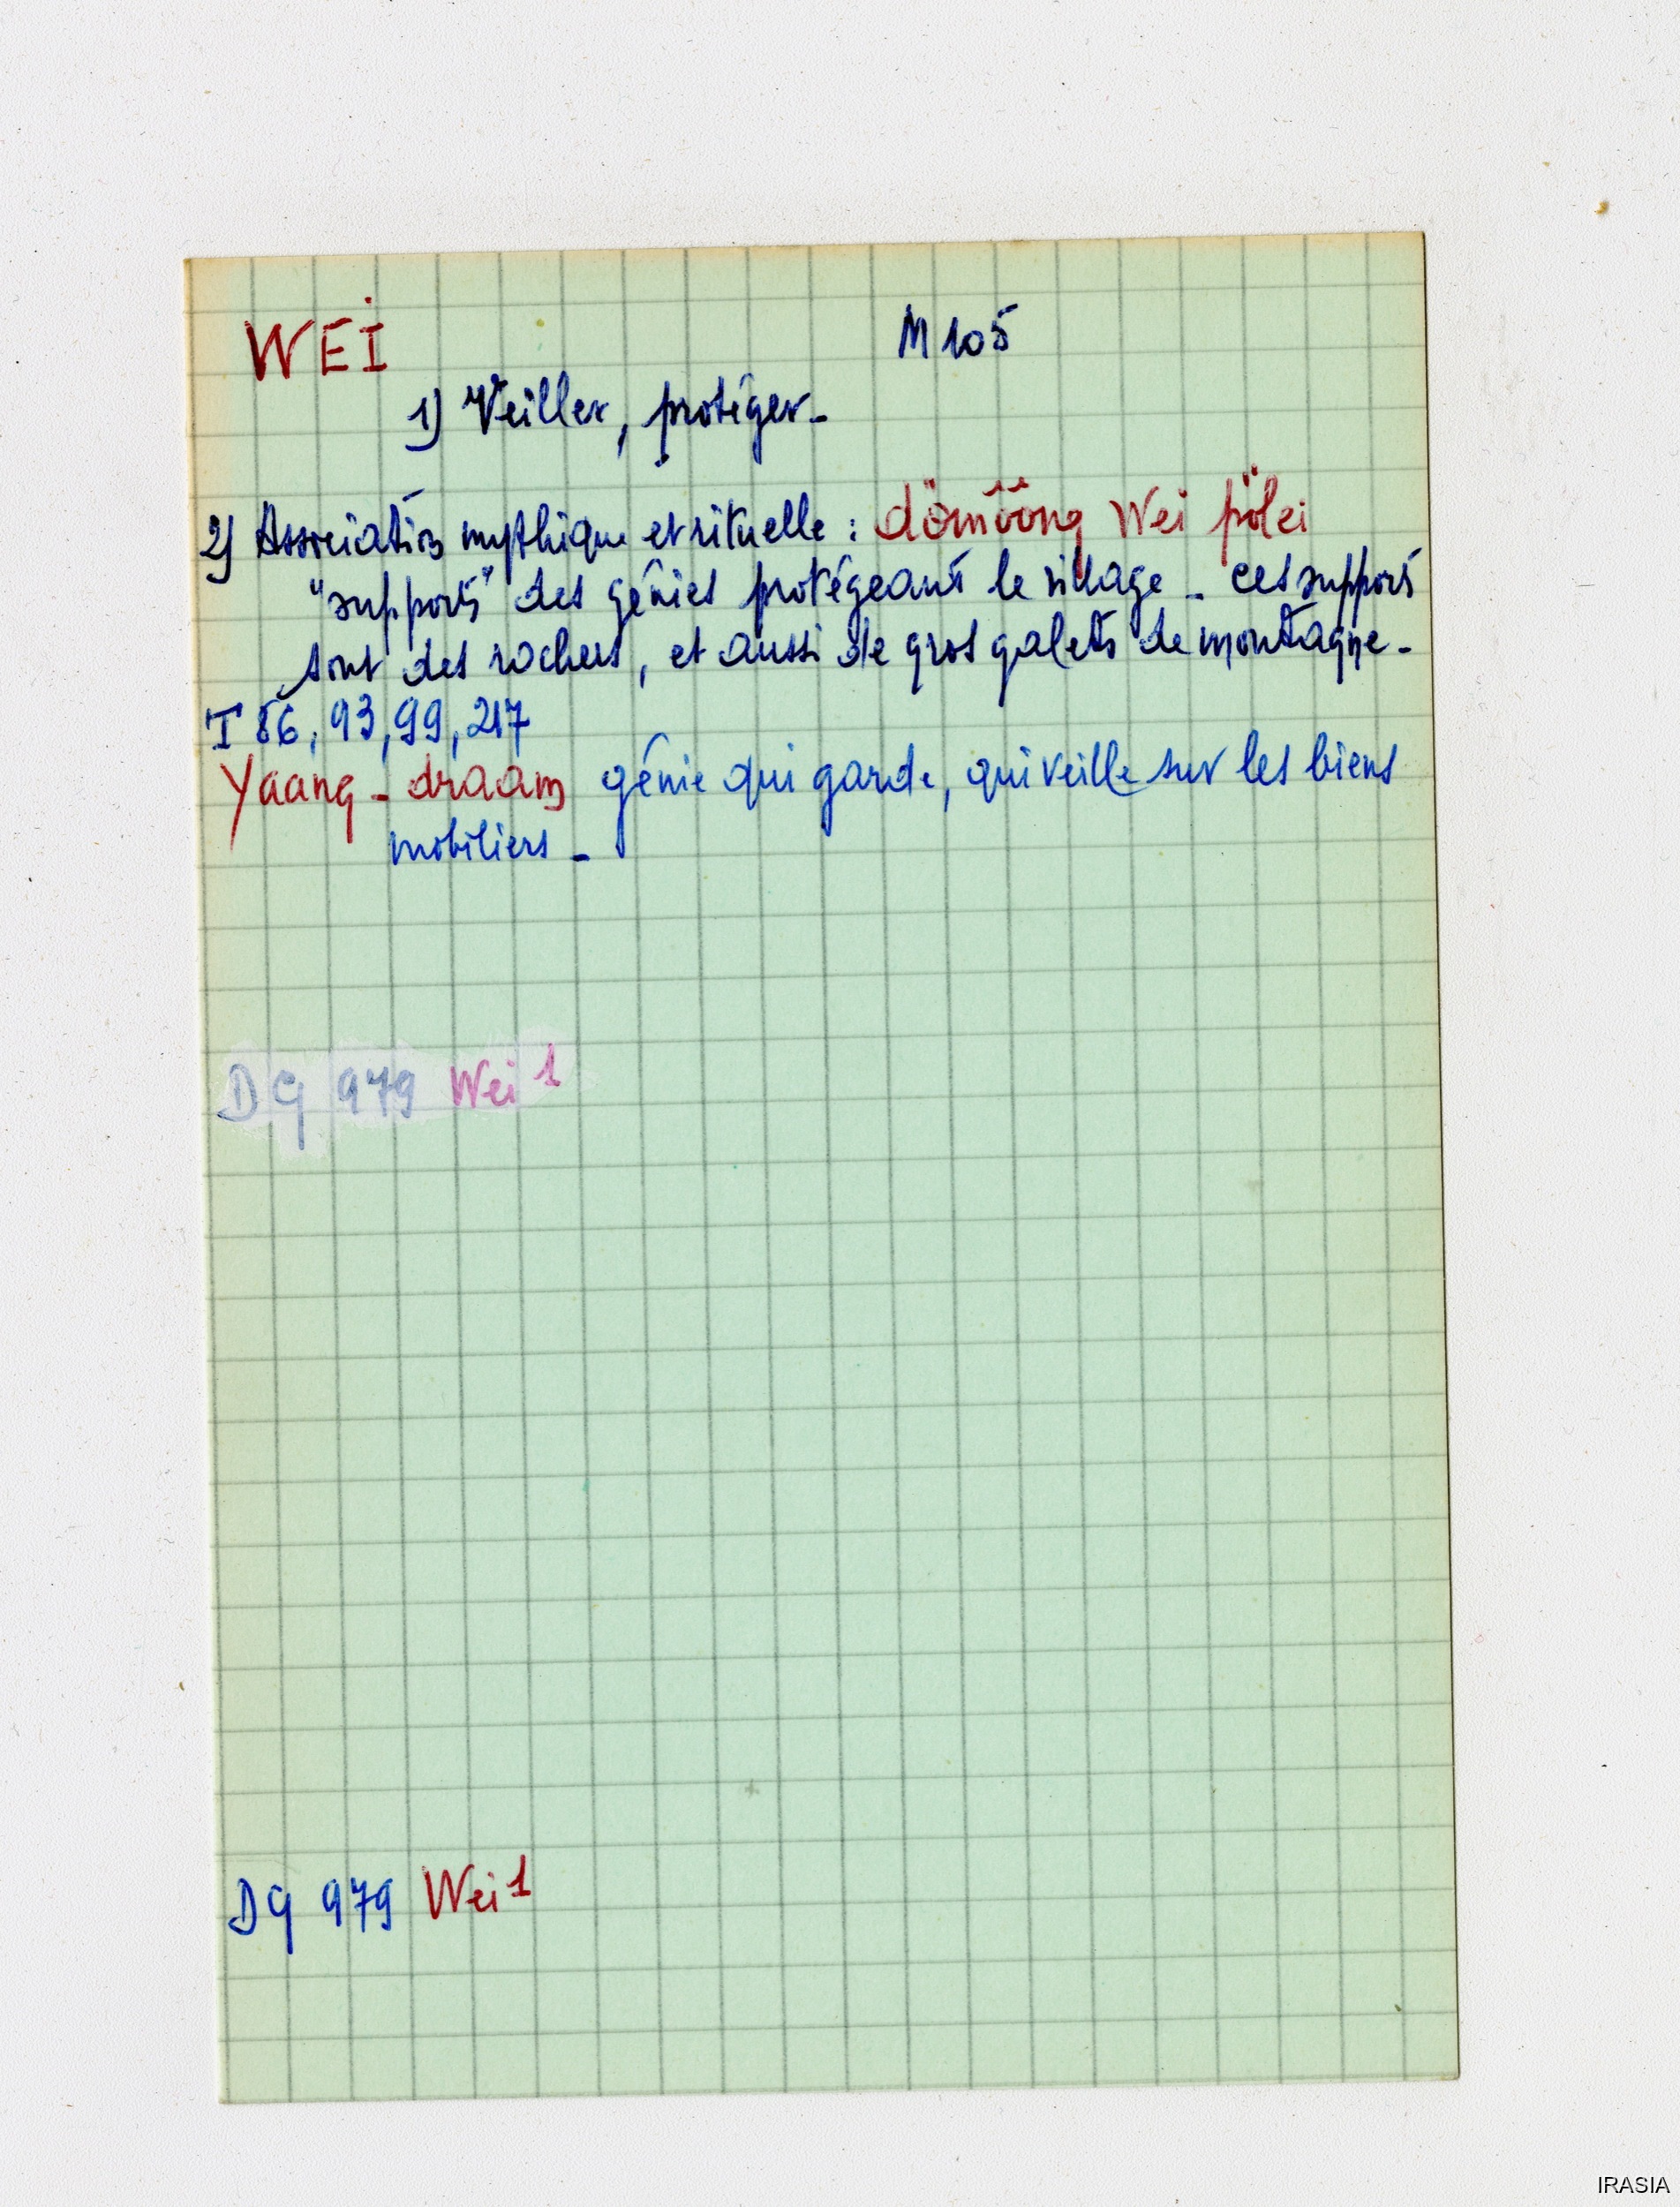 WEI M 105
1) Veiller, protéger -
2) Association mythique et rituelle : dömôông Wei pölei
"supports" des génies protégeants le village - ces supports
sont des rochers, et aussi de gros galets de montagne -
T 86, 93, 99, 217
Yaang - draam génie qui garde, qui veille sur les biens
mobiliers -
DG 979 Wei 1
DG 979 Wei 1
IRASIA